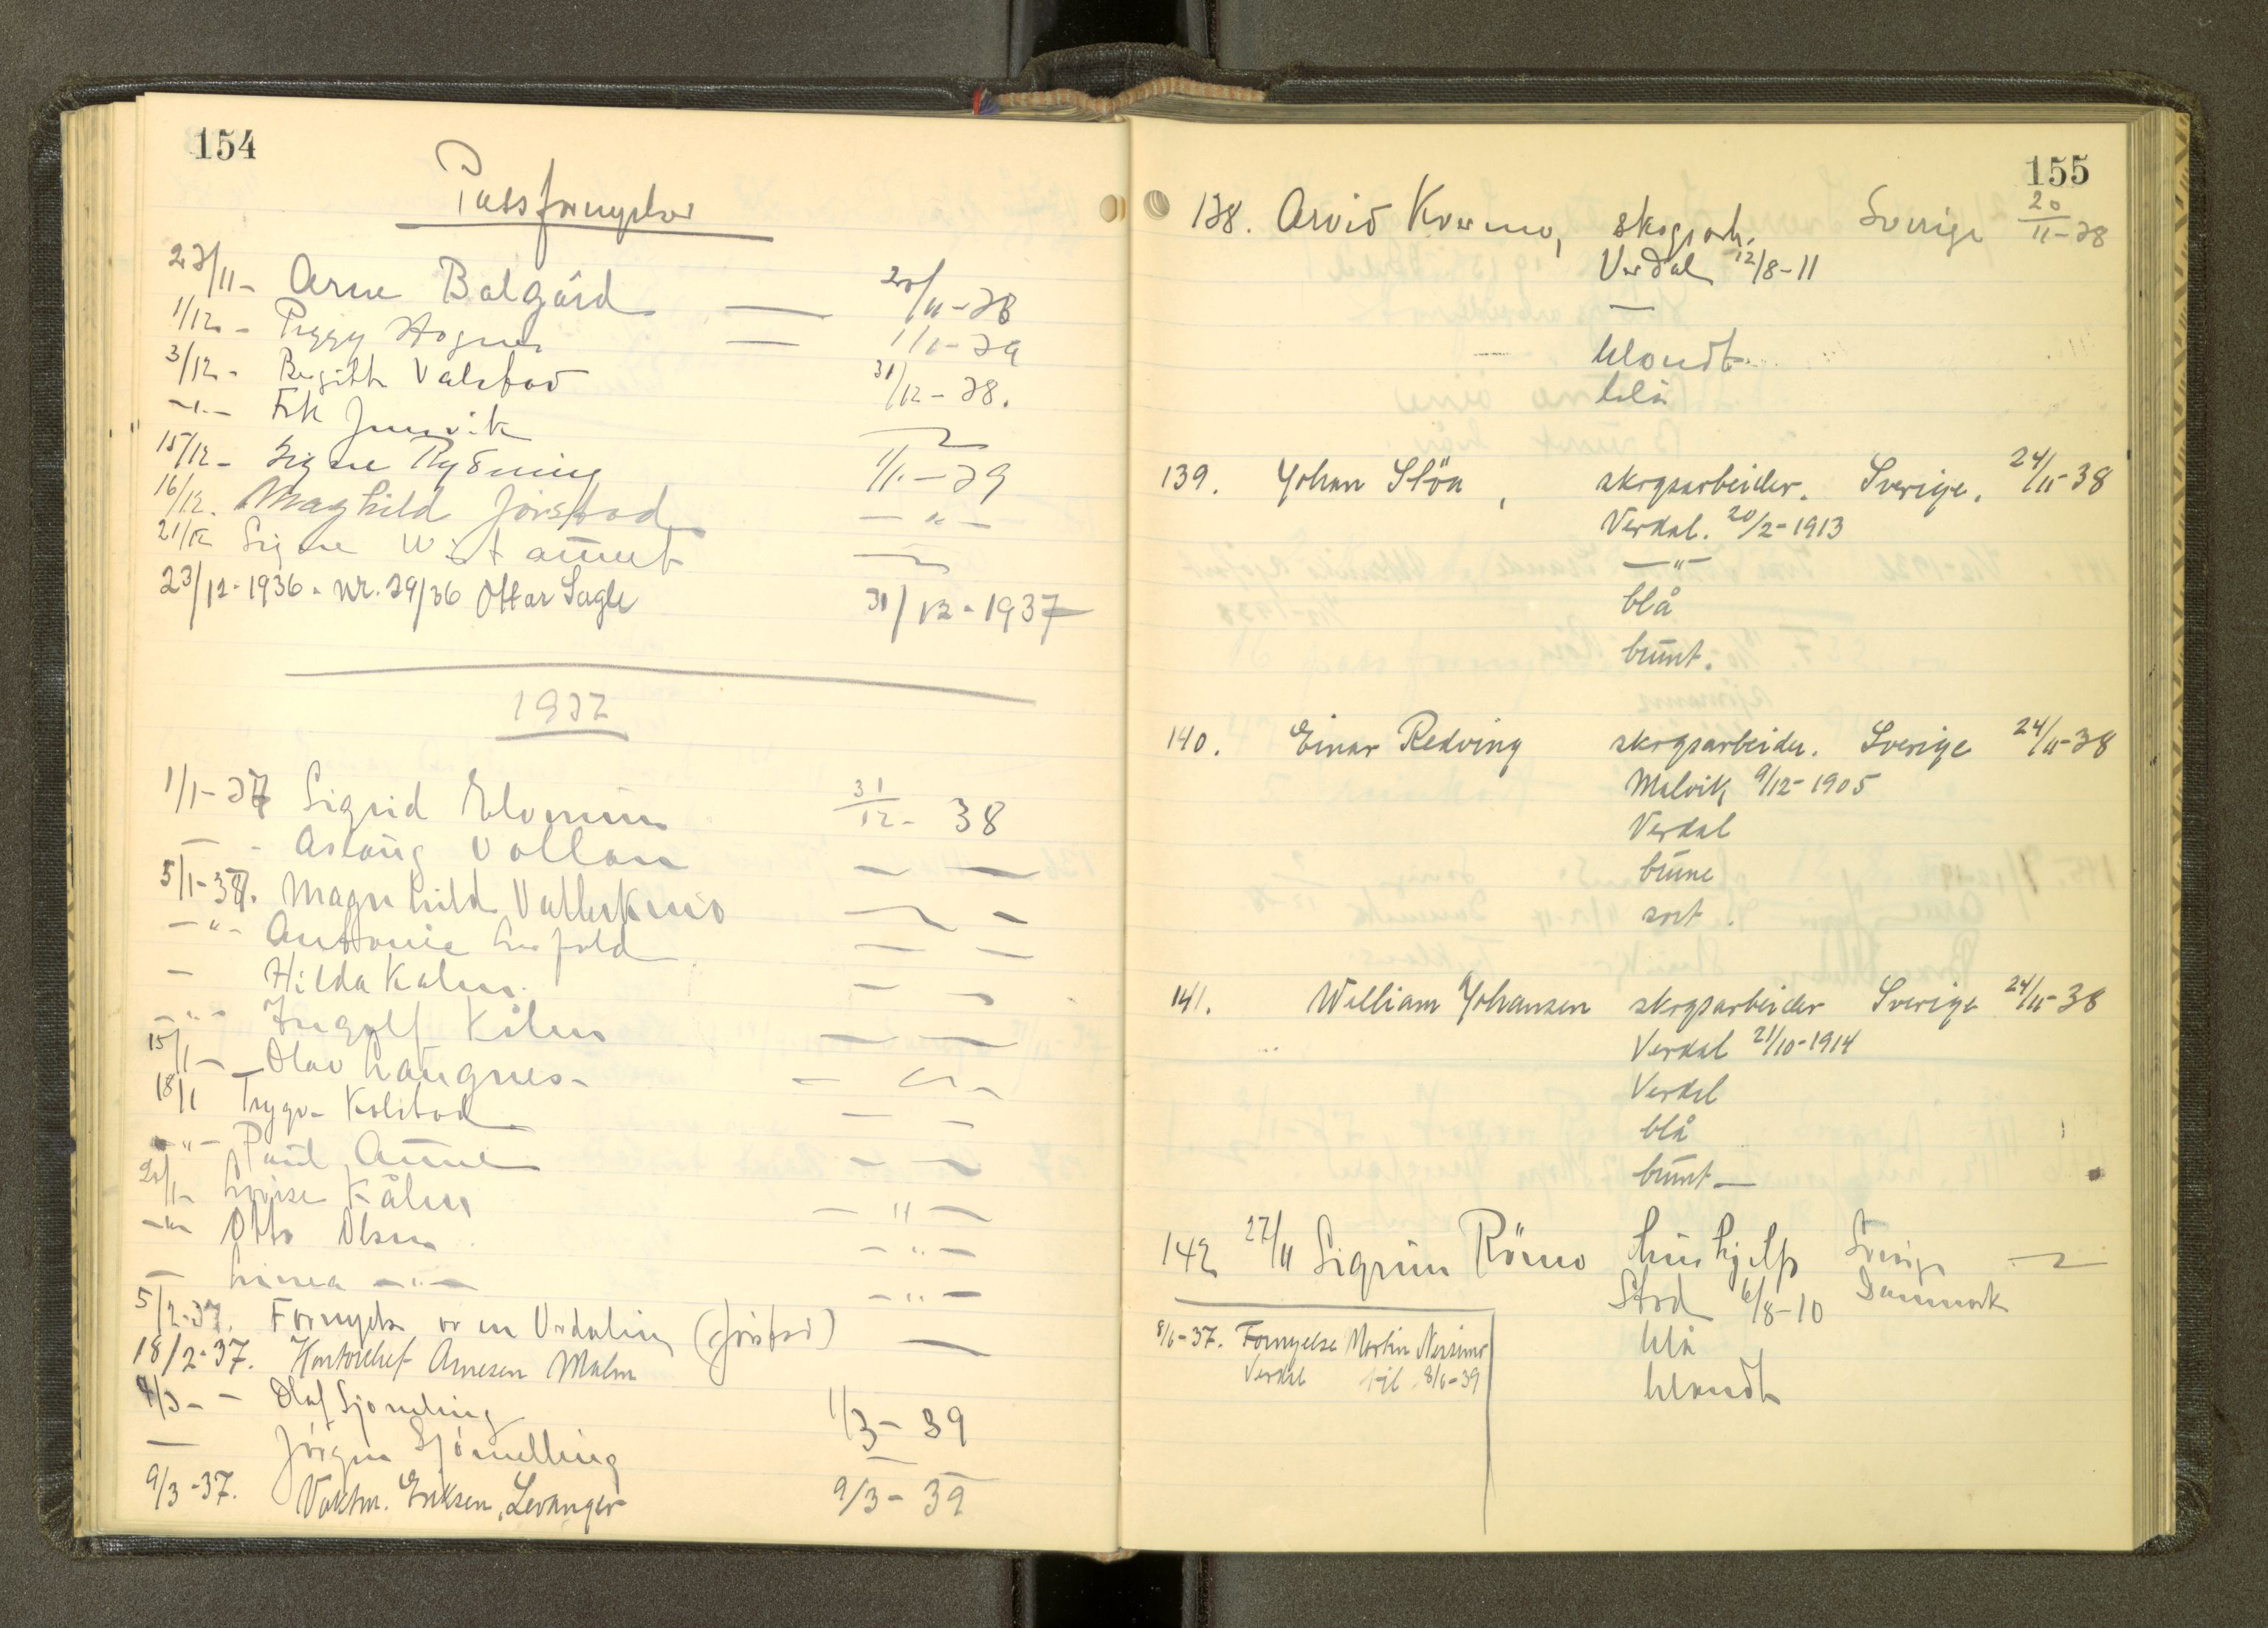 154
Passfornyelser
23/11 - Arne Balgård — 20/11-38
1/12 - Peggy Hognes — 1/1-39
3/12 - Birgith Valstad 31/12-38.
-"- Frk Junvik
15/12 - Signe Rydning 1/1-39
16/12. Maghild Jørstad -"-
21/12 Signe Wist aunet
23/12-1936. Nr. 29/36 Ottar Sagle 31/12-1937
1937
1/1-37 Sigrid Elvenun 31/12-38
— - Aslaug Vollan — —
5/1-37. Magnhild Vatterkmo — -
-"- Antonie — —
— Hilda Kalm — —
-"- Ingolf Kålm — —
15/1 - Olav Langnes -
18/1 Trygve Kolstad — —
-"- Paul Aune — —
20/1- Lovise Kålm - " —
-"- Otto Olsen - " -
— Linea -"- - " -
5/2-37. Fornyelse av en Verdaling (Jörstad) —
18/2-37. Kontorchef Arnesen Malm
4/3 - - Olaf Sjømeling 1/3-39
— Jørgen Sjömelling —
9/3-37. Vaktm. Eriksen, Levanger 9/3-39
155
138. Arvid Kvermo, skogsarb. Sverige 20/11-38
Verdal 12/8-11
—
blondt
blå
139. Johan Slöa, skogsarbeider. Sverige. 24/11-38
Verdal. 20/2-1913
—"—
blå
brunt.
140. Einar Redving skogsarbeider. Sverige 24/11-38
Malvik 9/12-1905
Verdal
brune
sort.
141. William Johansen skogsarbeider Sverige 24/11-38
Verdal 21/10-1914
Verdal
blå
brunt —
142 27/11 Sigrun Römo hushjelp Sverige
Stod 6/8-10 Danmark
8/6-37. Fornyelse Martin Nessimo blå
Verdal til 8/6-39 blondt